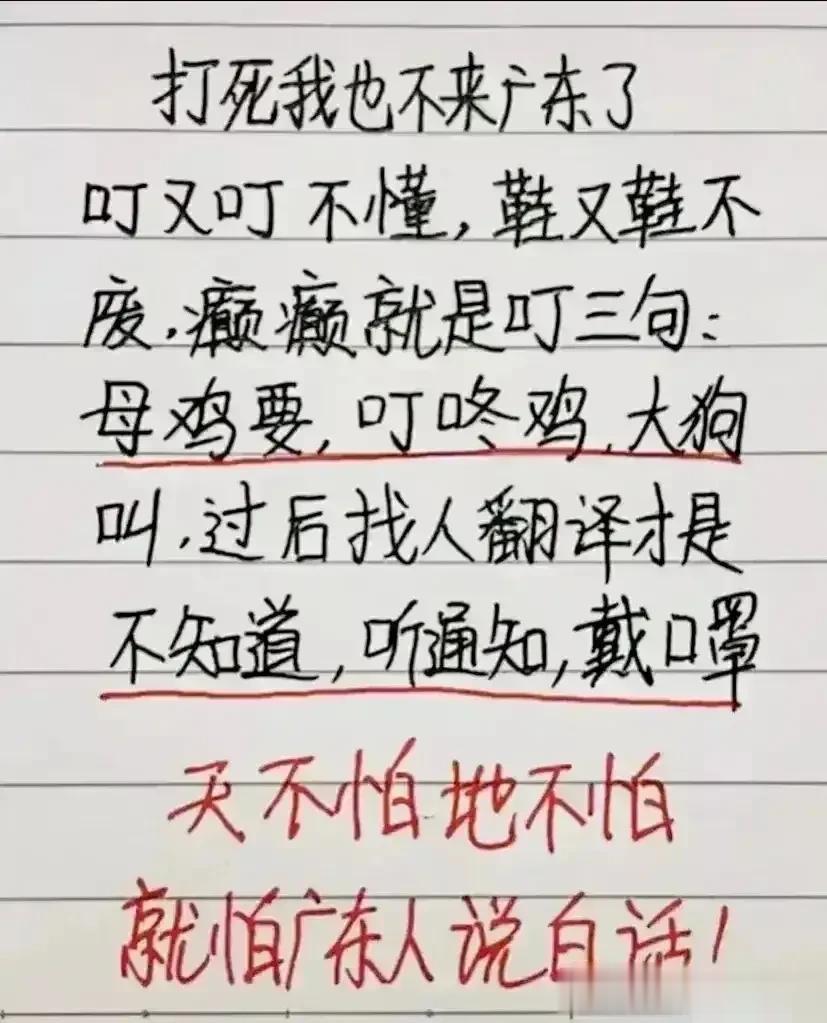 打死我也不来广东了
叮又叮不懂,鞋又鞋不
废,癫癫就是叮三句:
母鸡要,叮咚鸡,大狗
叫,过后找人翻译才是
不知道,听通知,戴口罩
天不怕地不怕
就怕广东人说白话!